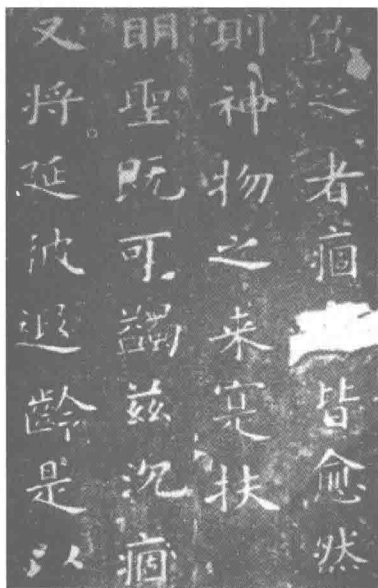 飲之者痼皆愈然
則神物之来寔扶
明聖既可蠲兹沉痼
又将延彼遐齡是以